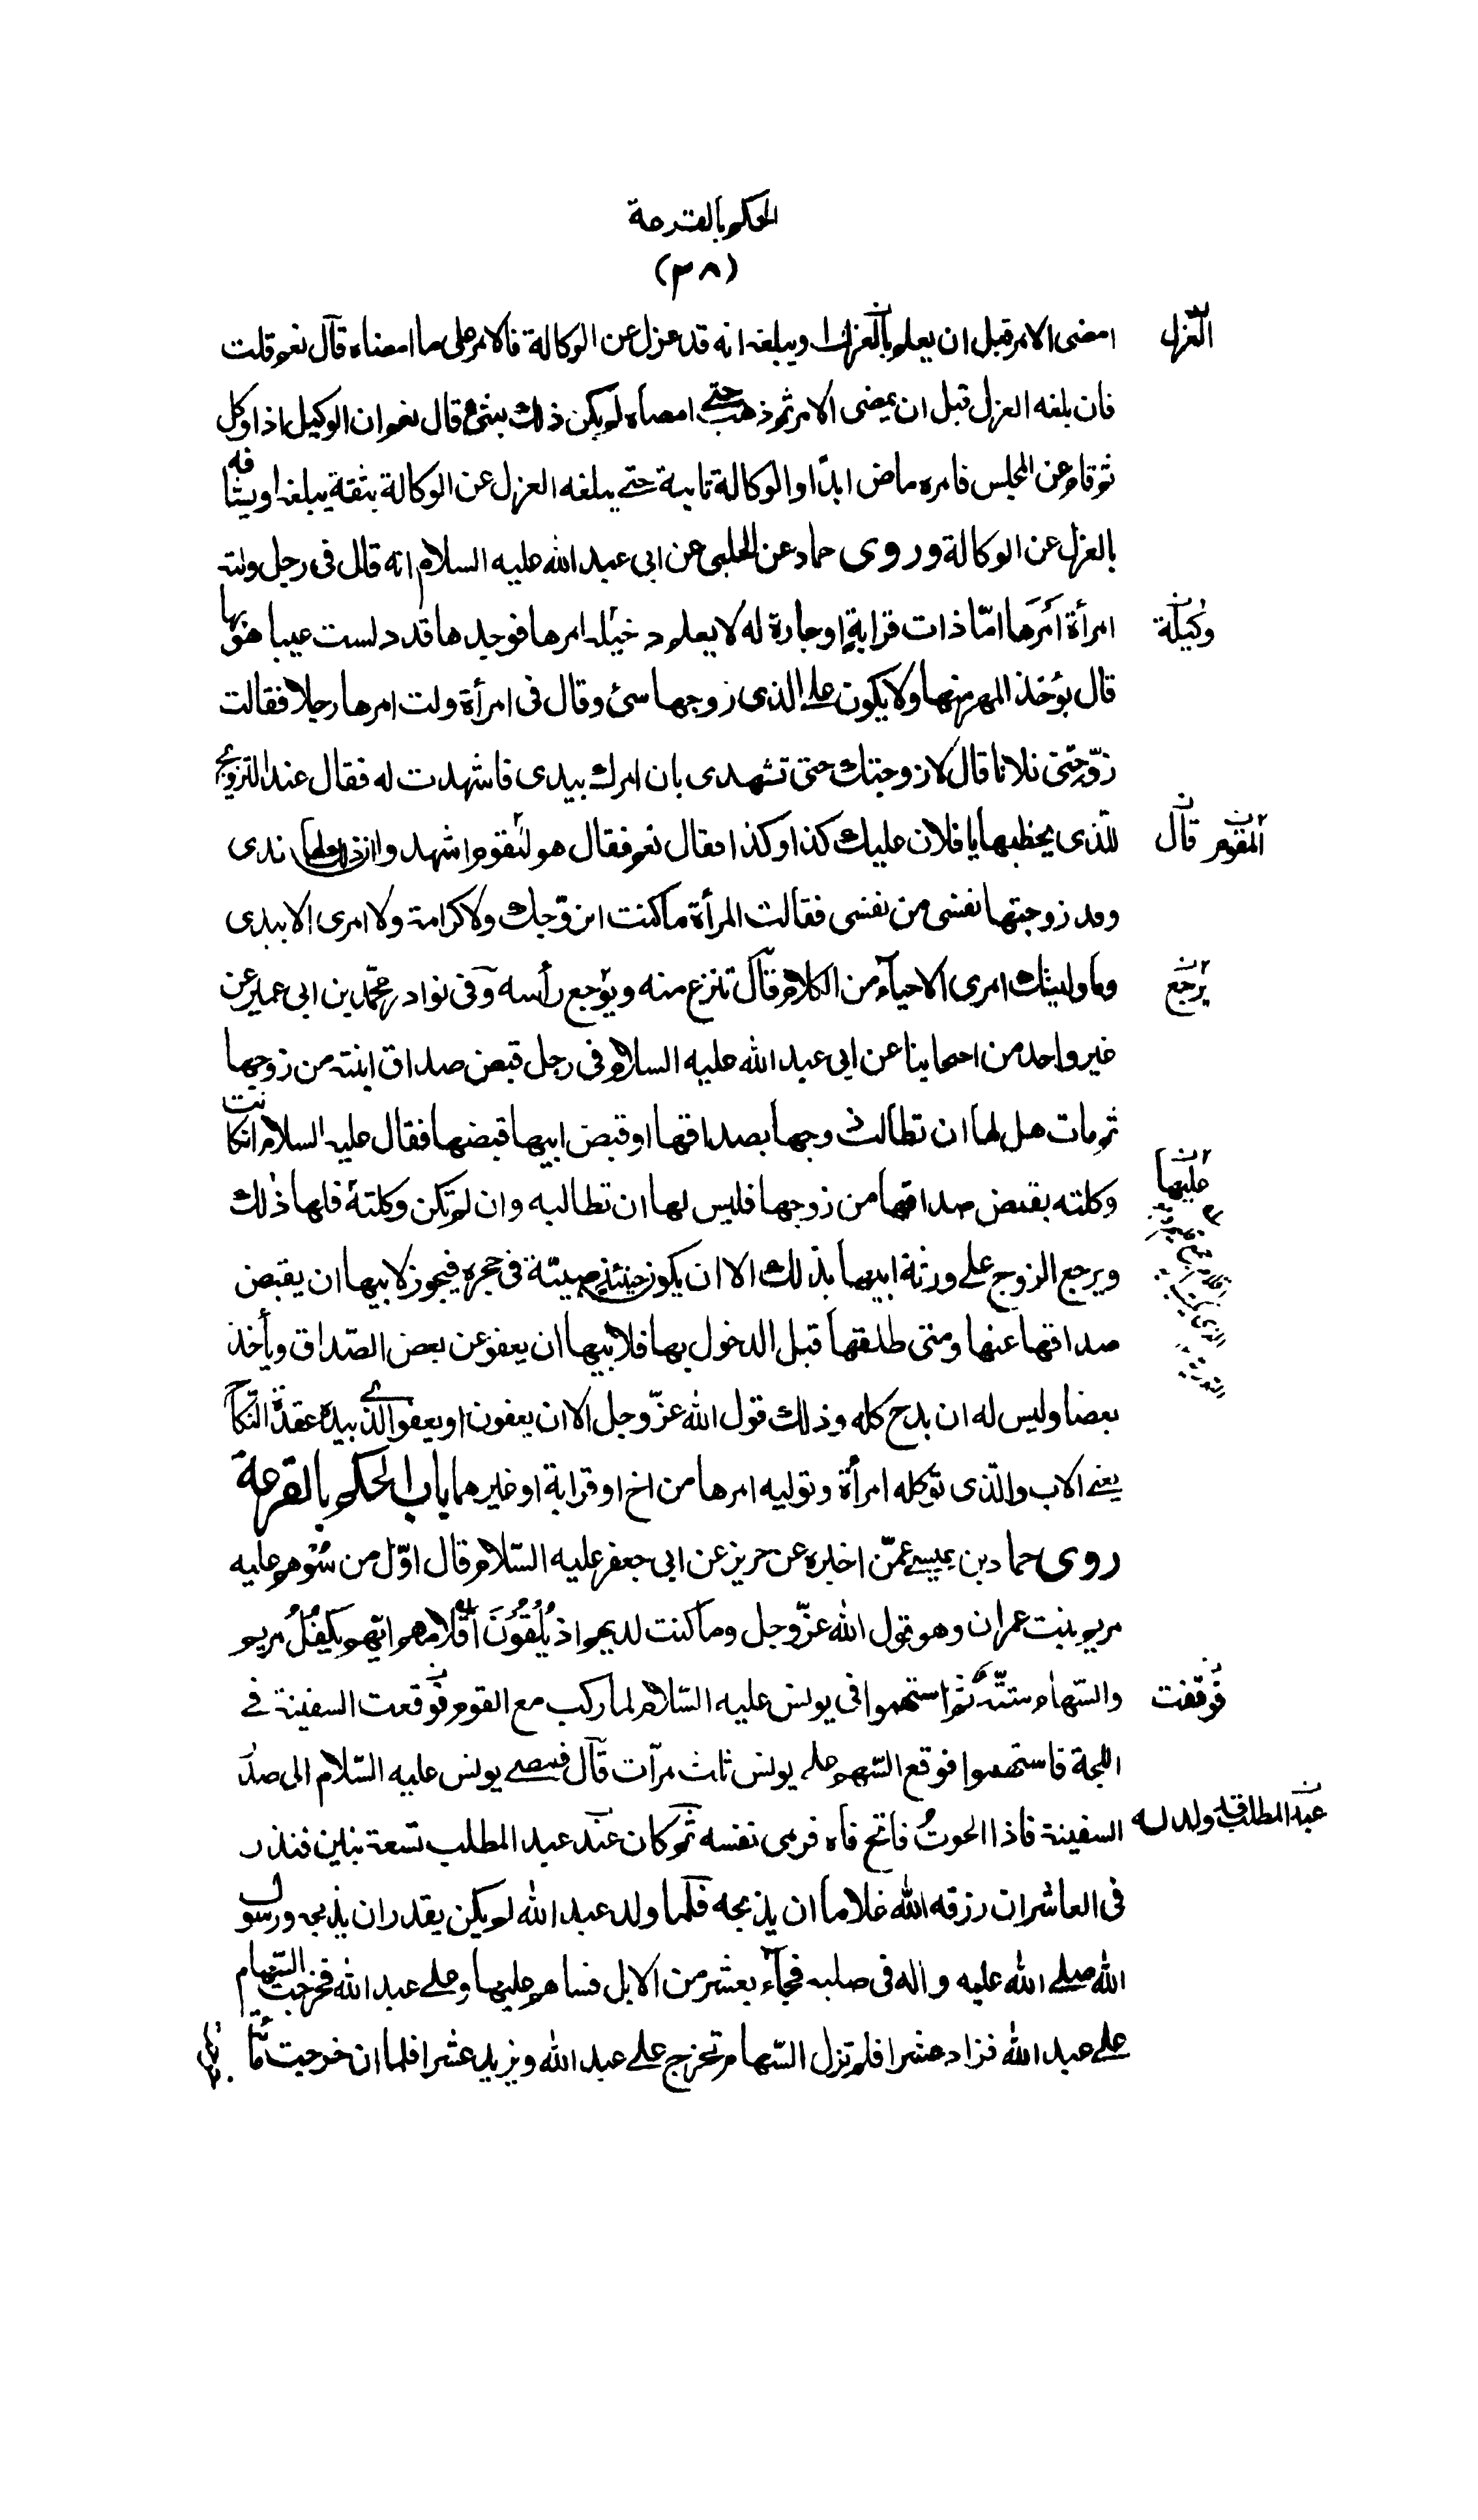 الحكم بالقرعة
(٣٨)
امضى الامر قبل ان يعلم بالعزل او يبلغه انه قد عزل عن الوكالة فالامر على ما امضاه قال نعم قلت
العزل
فان بلغه العزل قبل ان يمضى الامر ثم ذهب حتى امضاه لم يكن ذلك بشئ قال نعم ان الوكيل اذا وكل
ثم قام عن المجلس فامره ماض ابدًا والوكالة ثابتة حتى يبلغه العزل عن الوكالة بثقة يبلغه او يشافه
بالعزل عن الوكالة وروى حماد عن الحلبى عن ابى عبد الله عليه السلام انه قال فى رجل ولته
امرأة اَمْرَها امّا ذات قرابةٍ او جارة له لا يعلم دخيلة امرها فوجدها قد دلست عيبا هو بها
قال يؤخذ المهر منها ولا يكون على الذى زوجها شئ وقال فى امرأة ولت امرها رجلا فقالت
زوّجنى فلانا قال لا زوجتك حتى تشهدى بان امرك بيدى فاشهدت له فقال عند التزويج
للّذى يخطبها يا فلان عليك كذا وكذا فقال نعم فقال هو للقوم اشهدوا ان ذلك لها عندى
القوم قال
وقد زوجتها نفسى من نفسى فقالت المرأة ما كنت اتزوّجك ولا كرامة ولا امرى الا بيدى
وما وليتك امرى الا حياء من الكلام قال تنزع منه ويوجع رأسه وفى نوادر محمّد بن ابى عمير عن
يرجع
غير واحد من اصحابنا عن ابى عبد الله عليه السلام فى رجل قبض صداق ابنته من زوجها
ثم مات هل لها ان تطالب زوجها بصداقها او قبض ابيها قبضها فقال عليه السلام ان كانت
وكلته بقبض صداقها من زوجها فليس لها ان تطالبه وان لم تكن وكلته فلها ذلك
عليها
ويرجع الزوج على ورثة ابيها بذلك الا ان يكون حينئذ صبيّة فى حجره فيجوز لابيها ان يقبض
صداقها عنها ومتى طلقها قبل الدخول بها فلابيها ان يعفو عن بعض الصّداق ويأخذ
بعضا وليس له ان يدع كله وذلك قول الله عزّ وجل الا ان يعفون او يعفو الذى بيده عقدة النكاح
يعنى الاب والّذى توكله امرأة وتوليه امرها من اخ او قرابة او غيرهما باب الحكم بالقرعة
روى حماد بن عيسى عمّن اخبره عن حريز عن ابى جعفر عليه السّلام قال اوّل من سُوْهِم عليه
مريم بنت عمران وهو قول الله عزّ وجل وما كنت لديهم اذ يُلْقُوْنَ اَقْلامهم ايّهم يَكْفُلُ مريم
والسّهام ستّة ثم استهموا فى يونس عليه السّلام لما ركب مع القوم فوقعت السفينة فى
فوقفت
اللجة فاستهموا فوقع السّهم على يونس ثلث مرّات قال فمضى يونس عليه السّلام الى صدر
السفينة فاذا الحوتُ فاتح فاه فرمى نفسه ثم كان عند عبد المطلب تسعة بنين فنذر
فى العاشر ان رزقه الله غلاما ان يذبحه فلما ولد عبد الله لم يكن يقدر ان يذبحه ورسول
الله صلى الله عليه واله فى صلبه فجاء بعشر من الابل فساهم عليها وعلى عبد الله فخرجت السّهام
على عبد الله فزاد عشرا فلم تزل السّهام تخرج على عبد الله ويزيد عشرا فلما ان خرجت مأة